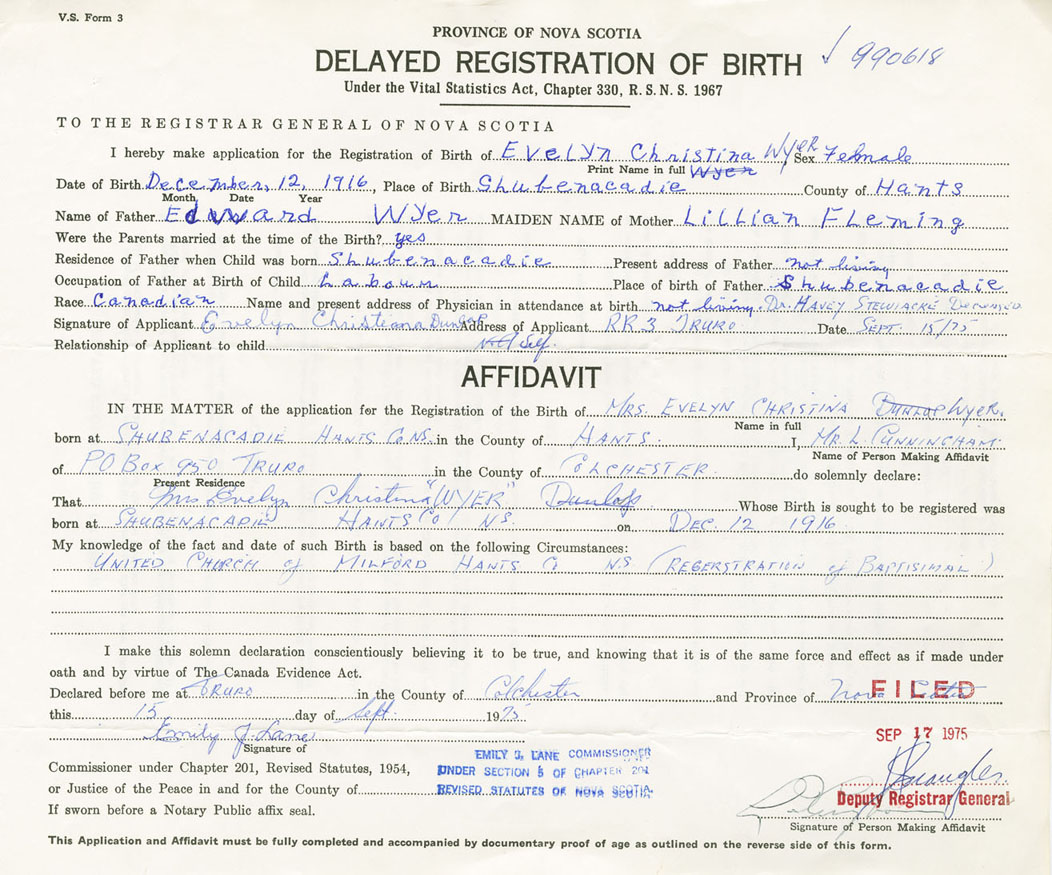 V.S. Form 3
PROVINCE OF NOVA SCOTIA
DELAYED REGISTRATION OF BIRTH
990618
Under the Vital Statistics Act, Chapter 330, R.S.N.S. 1967
TO THE REGISTRAR GENERAL OF NOVA SCOTIA
I hereby make application for the Registration of Birth of Evelyn Christina Wyer Sex Female
Print Name in full Wyer
Date of Birth December, 12, 1916, Place of Birth Shubenacadie County of Hants
Month Date Year
Name of Father Edward Wyer MAIDEN NAME of Mother Lillian Fleming
Were the Parents married at the time of the Birth? yes
Residence of Father when Child was born Shubenacadie Present address of Father not living
Occupation of Father at Birth of Child Labour Place of birth of Father Shubenacadie
Race Canadian Name and present address of Physician in attendance at birth not living. Dr. Havey Stewiacke Deceased
Signature of Applicant Evelyn Christiana Dunlap Address of Applicant RR3 Truro Date Sept. 15/75
Relationship of Applicant to child Self.
AFFIDAVIT
IN THE MATTER of the application for the Registration of the Birth of Mrs. Evelyn Christina Dunlop Wyer.
Name in full
born at Shubenacadie Hants Co NS. in the County of Hants. I, Mr. L. Cunningham.
Name of Person Making Affidavit
of PO Box 950 Truro in the County of Colchester. do solemnly declare:
Present Residence
That Mrs Evelyn Christina "WYER" Dunlap Whose Birth is sought to be registered was
born at Shubenacadie Hants Co NS. on Dec. 12 1916.
My knowledge of the fact and date of such Birth is based on the following Circumstances:
United Church of Milford Hants Co NS (Regerstration of Baptisimal)
I make this solemn declaration conscientiously believing it to be true, and knowing that it is of the same force and effect as if made under
oath and by virtue of The Canada Evidence Act.
Declared before me at Truro in the County of Colchester and Province of Nova Scotia
FILED
this 15 day of Sept. 1975
SEP 17 1975
Emily J. Lane
Signature of
Commissioner under Chapter 201, Revised Statutes, 1954,
or Justice of the Peace in and for the County of
If sworn before a Notary Public affix seal.
EMILY J. LANE COMMISSIONER
UNDER SECTION 5 OF CHAPTER 201
REVISED STATUTES OF NOVA SCOTIA
Deputy Registrar General
Signature of Person Making Affidavit
This Application and Affidavit must be fully completed and accompanied by documentary proof of age as outlined on the reverse side of this form.